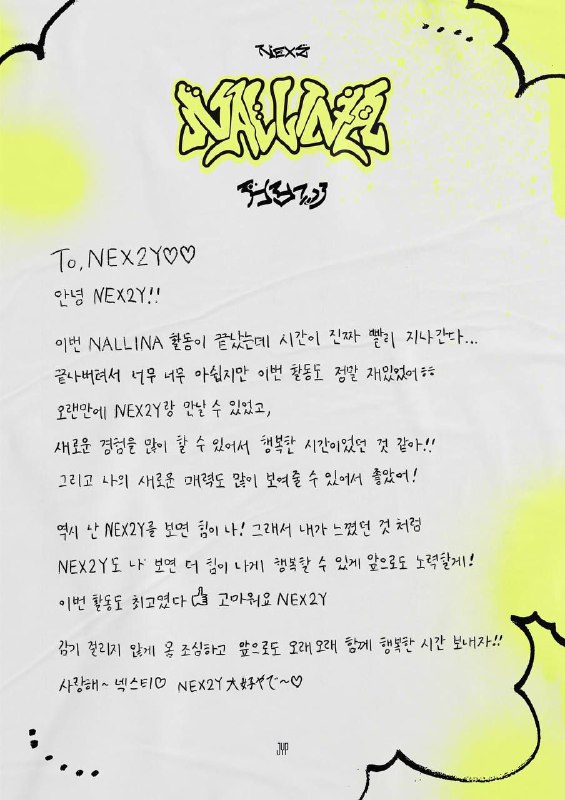 NEXZ
NALLINA
To, NEX2Y♡♡
안녕 NEX2Y!!
이번 NALLINA 활동이 끝났는데 시간이 진짜 빨리 지나간다...
끝나버려서 너무 너무 아쉽지만 이번 활동도 정말 재밌었어ㅎㅎ
오랜만에 NEX2Y랑 만날 수 있었고,
새로운 경험을 많이 할 수 있어서 행복한 시간이었던 것 같아!!
그리고 나의 새로운 매력도 많이 보여줄 수 있어서 좋았어!
역시 난 NEX2Y를 보면 힘이 나! 그래서 내가 느꼈던 것 처럼
NEX2Y도 나 보면 더 힘이 나게 행복할 수 있게 앞으로도 노력할게!
이번 활동도 최고였다 👍 고마워요 NEX2Y
감기 걸리지 않게 몸 조심하고 앞으로도 오래오래 함께 행복한 시간 보내자!!
사랑해~ 넥스티♡ NEX2Y 大好きやで~♡
JYP